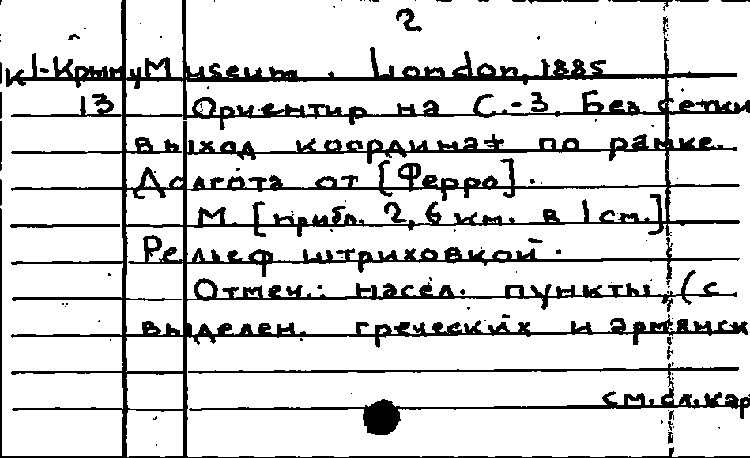 2
К1-Крыму Museum. London, 1885
13 Ориентир на С.-З. Без сетки
выход координат по рамке.
Долгота от [Ферро].
М. [прибл. 2,6 км. в 1 см.]
Рельеф штриховкой.
Отмеч.: насел. пункты, (с
выделен. греческих и армянск
см. сл. кар